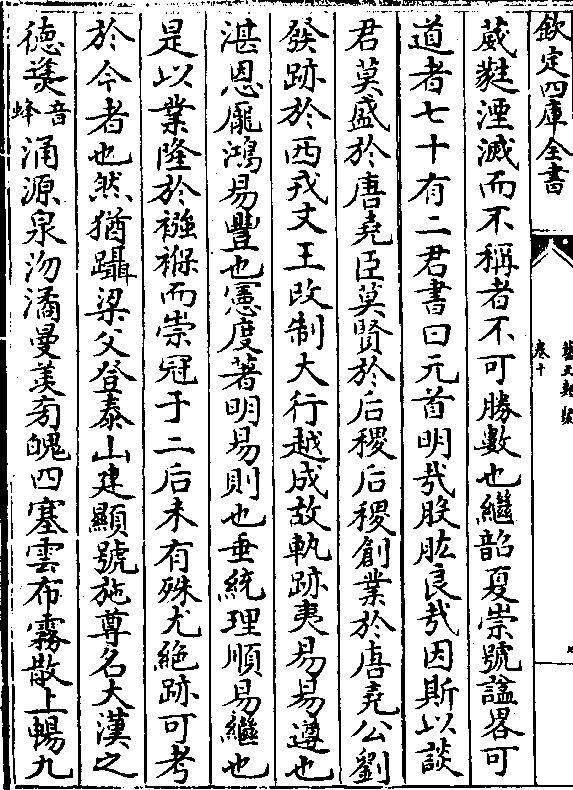 欽定四庫全書
藝文類聚
卷十
葳蕤湮滅而不稱者不可勝數也繼韶夏崇號諡畧可
道者七十有二君書曰元首明哉股肱良哉因斯以談
君莫盛於唐堯臣莫賢於后稷后稷創業於唐堯公劉
發跡於西戎文王改制大行越成故軌跡夷易易遵也
湛恩龐鴻易豐也憲度著明易則也垂統理順易繼也
是以業隆於襁褓而崇冠于二后未有殊尤絶跡可考
於今者也然猶躡梁父登泰山建顯號施尊名大漢之
德㷭音蜂涌源泉沕潏曼羡旁魄四塞雲布霧散上暢九